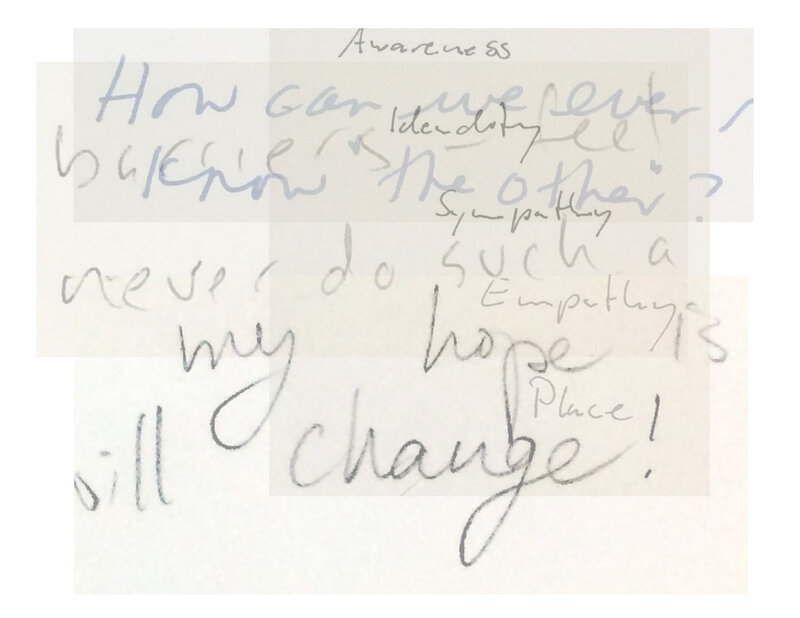 Awareness
How can we ever
Idendoty
barriers - feel
know the other?
Sympathy
never do such a
Empathy
my hope is
Place
will change!